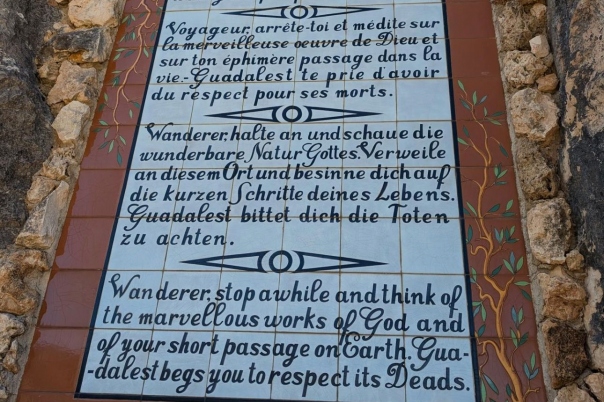 Voyageur, arrête-toi et médite sur
la merveilleuse oeuvre de Dieu et
sur ton éphimère passage dans la
vie.- Guadalest te prie d'avoir
du respect pour ses morts.
Wanderer, halte an und schaue die
wunderbare Natur Gottes. Verweile
an diesem Ort und besinne dich auf
die kurzen Schritte deines Lebens.
Guadalest bittet dich die Toten
zu achten.
Wanderer, stop awhile and think of
the marvellous works of God and
of your short passage on Earth. Gua-
dalest begs you to respect its Deads.